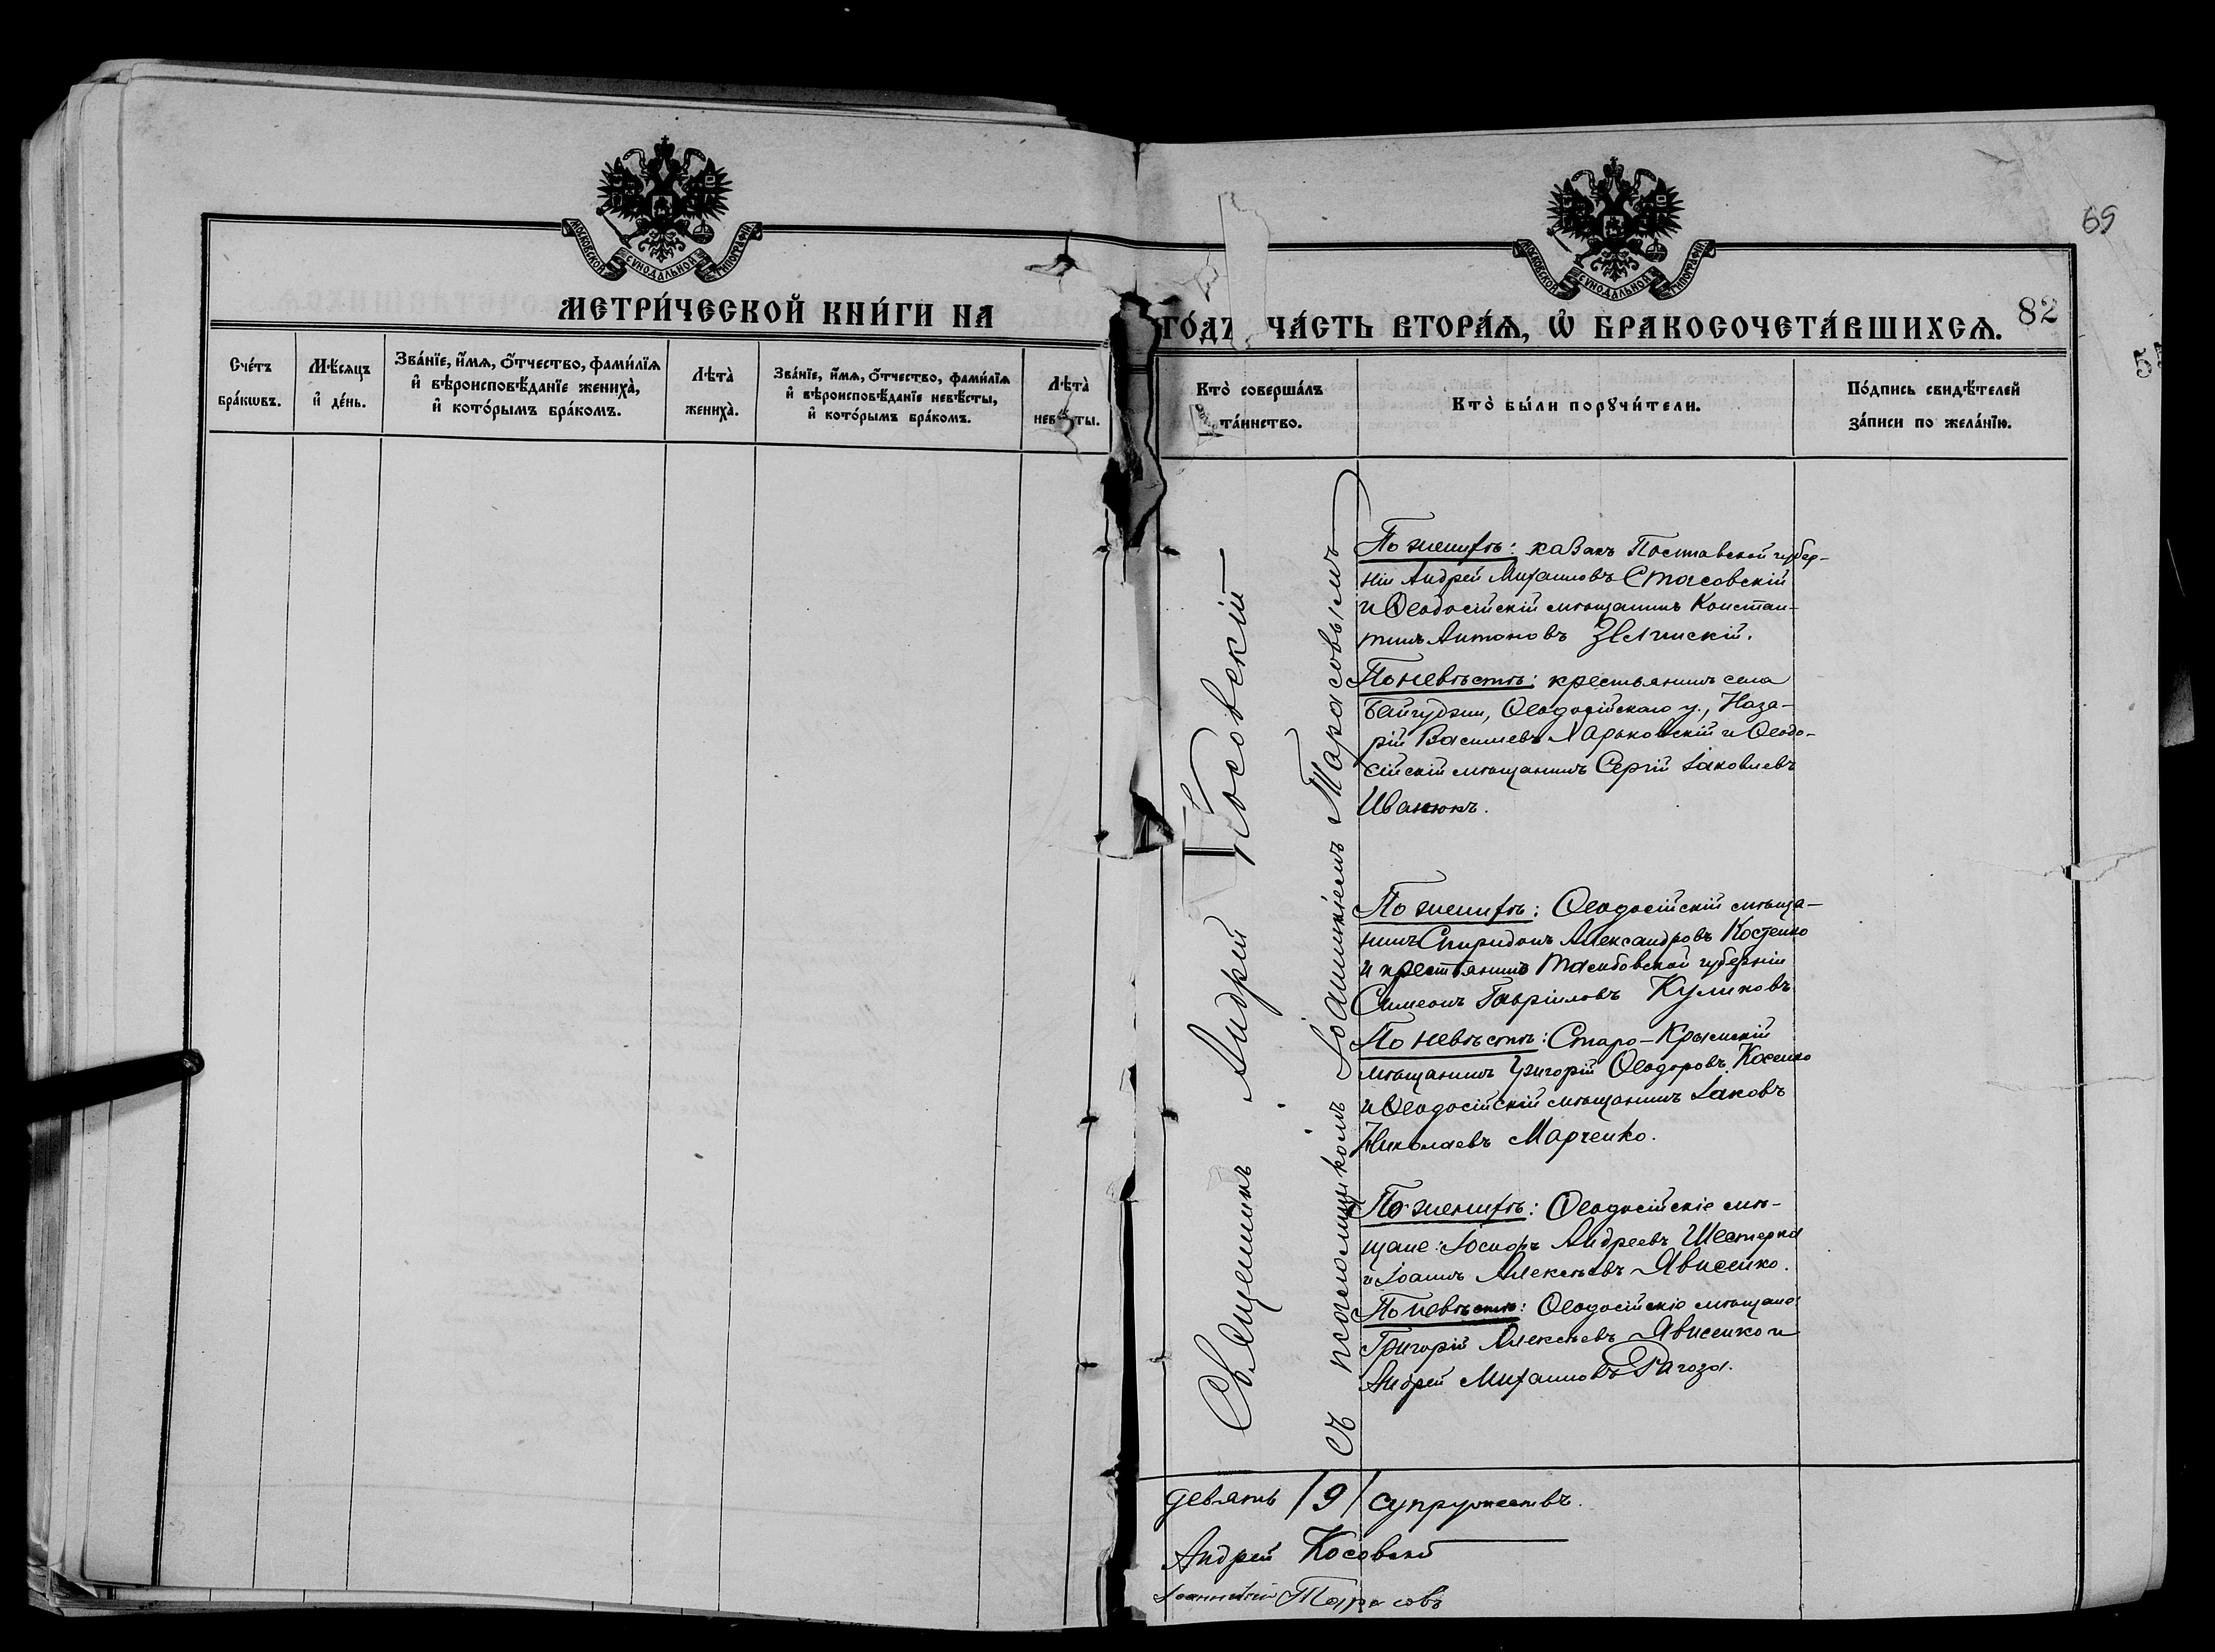 69
МОСКОВСКОЙ СѴНОДАЛЬНОЙ ТИПОГРАФІИ
МОСКОВСКОЙ СѴНОДАЛЬНОЙ ТИПОГРАФІИ
МЕТРИ́ЧЕСКОЙ КНИ́ГИ НА
ГО́ДЪ ЧА́СТЬ ВТОРА́Ѧ, Ѡ҆ БРАКОСОЧЕТА́ВШИХСѦ.
82
Сче́тъ
бра́кѡвъ.
Мѣ́сяцъ
и҆ де́нь.
Зва́нїе, и҆́мѧ, ѻ҆́тчество, фами́лїѧ
и҆ вѣроисповѣ́данїе жениха̀,
и҆ кото́рымъ бра́комъ.
Лѣта̀
жениха̀.
Зва́нїе, и҆́мѧ, ѻ҆́тчество, фами́лїѧ
и҆ вѣроисповѣ́данїе невѣ́сты,
и҆ кото́рымъ бра́комъ.
Лѣта̀
невѣ́сты.
Кто̀ соверша́лъ
та́инство.
Кто̀ бы́ли порꙋчи́тели.
По́дпись свидѣ́телей
за́писи по жела́нїю.
Священникъ Андрей Косовскій
съ псаломщикомъ Іоанникіемъ Тарасовымъ
По женихѣ: казакъ Полтавской губер-
ніи Андрей Михаиловъ Стасовскій
и Ѳеодосійскій мѣщанинъ Констан-
тинъ Антоновъ Зелинскій.
По невѣстѣ: крестьянинъ села
Байгуджи, Ѳеодосійскаго у., Наза-
рій Васильевъ Харьковскій и Ѳеодо-
сійскій мѣщанинъ Сергій Іаковлевъ
Иванюкъ.
По женихѣ: Ѳеодосійскій мѣща-
нинъ Спиридонъ Александровъ Костенко
и крестьянинъ Тамбовской губерніи
Симеонъ Гавріиловъ Куликовъ.
По невѣстѣ: Старо-Крымскій
мѣщанинъ Григорій Ѳеодоровъ Косенко
и Ѳеодосійскій мѣщанинъ Іаковъ
Николаевъ Марченко.
По женихѣ: Ѳеодосійскіе мѣ-
щане: Іосифъ Андреевъ Шестерка
и Іоаннъ Алексѣевъ Явисенко.
По невѣстѣ: Ѳеодосійскіе мѣщане:
Григорій Алексѣевъ Явисенко и
Андрей Михаиловъ Рагоза.
девять /9/ супружествъ.
Андрей Косовскій
Іоанникій Тарасовъ